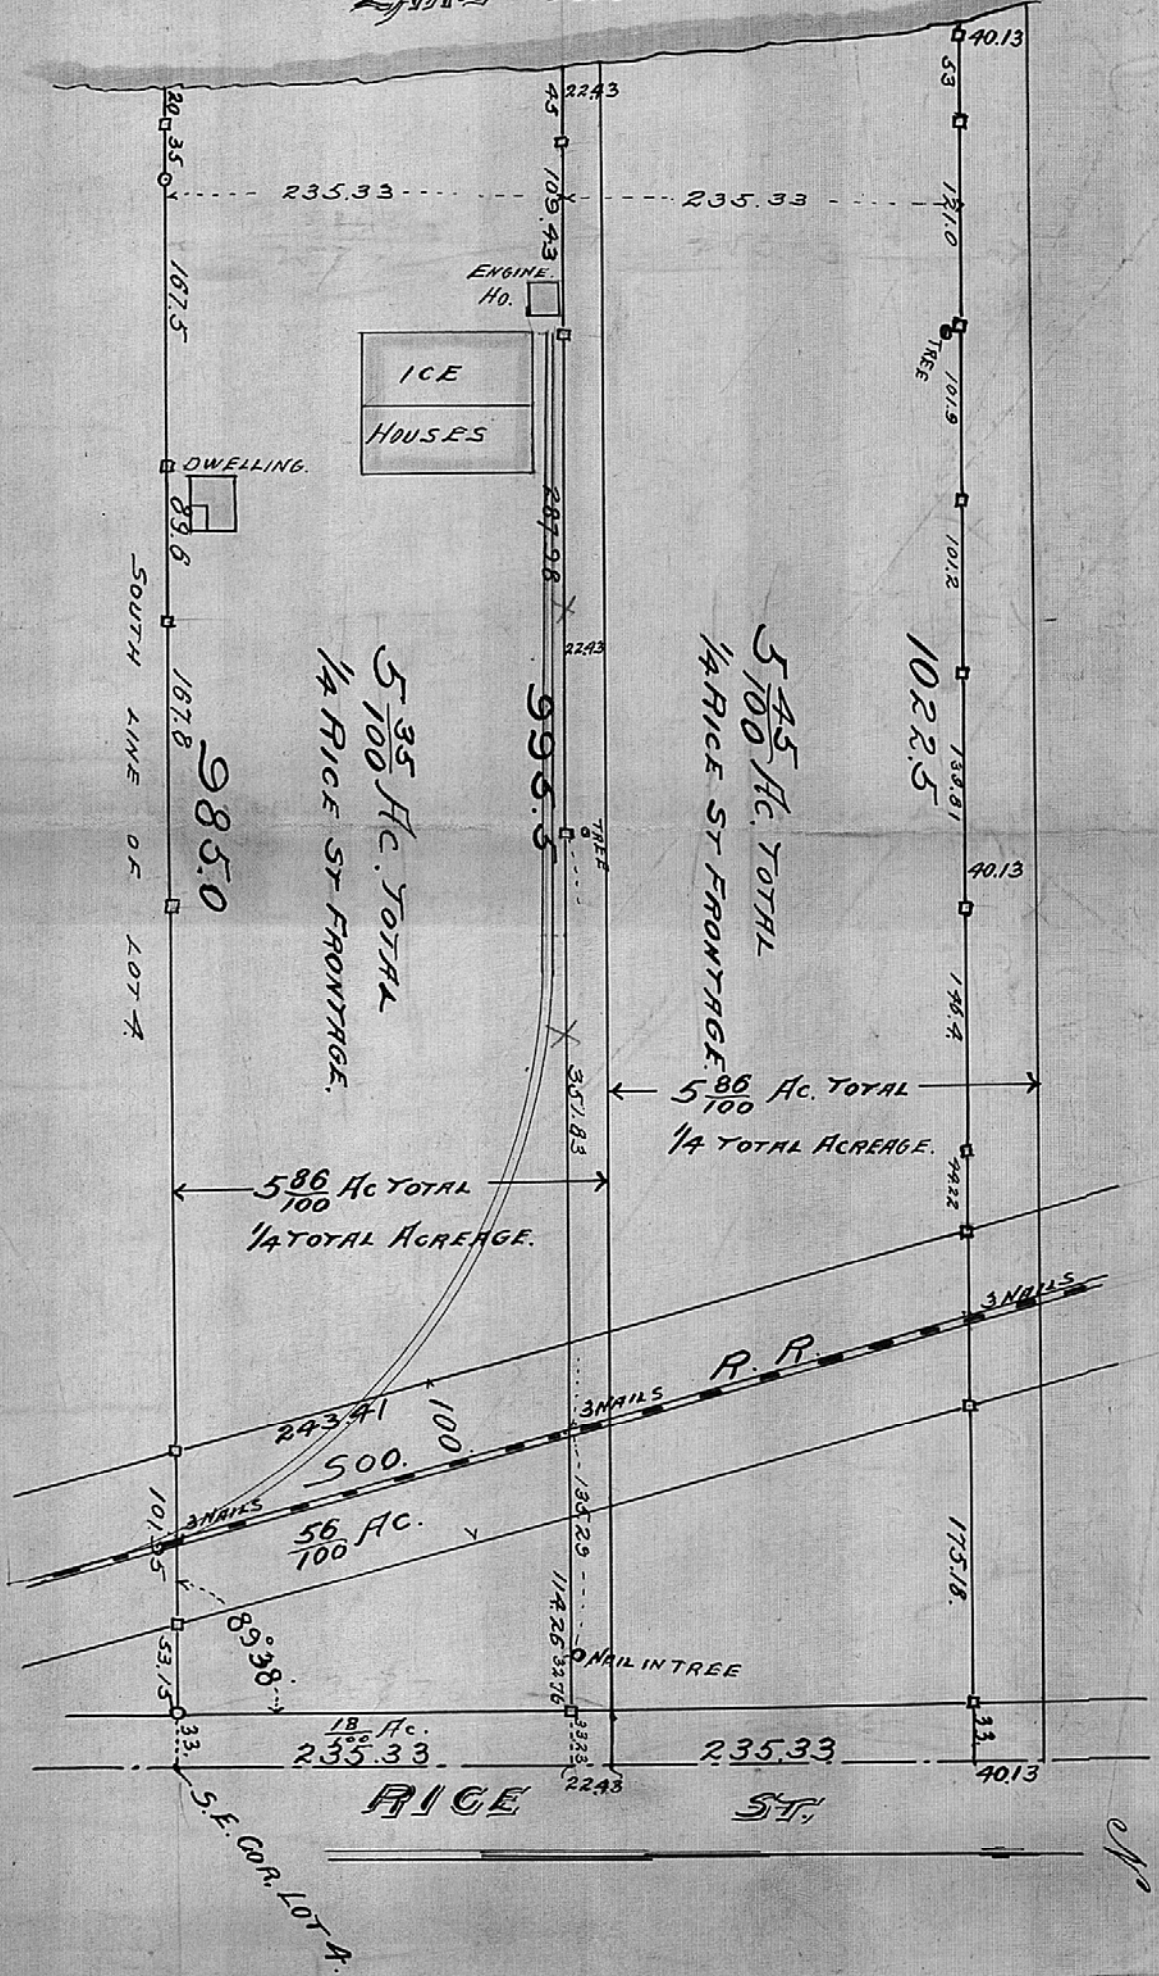 40.13
53
45
22.43
20
35
109.43
121.0
235.33
235.33
167.5
ENGINE.
HO.
TREE
101.9
ICE
HOUSES
DWELLING.
89.6
287.98
101.2
SOUTH LINE OF LOT 4.
167.8
985.0
5 35/100 AC. TOTAL
1/4 RICE ST FRONTAGE.
995.5
22.43
5 45/100 AC. TOTAL
1/4 RICE ST FRONTAGE.
1022.5
133.81
TREE
40.13
146.4
351.83
5 86/100 AC. TOTAL
1/4 TOTAL ACREAGE.
44.22
5 86/100 AC TOTAL
1/4 TOTAL ACREAGE.
3 NAILS
R. R.
3 NAILS
243.41
100
SOO.
3 NAILS
101.95
56/100 AC.
135.29
175.18.
114.26
32.76
89°38'
53.15
NAIL IN TREE
33.
18/100 Ac.
235.33
33.23
22.43
235.33
33.
40.13
RICE ST.
S.E. COR. LOT 4.
N